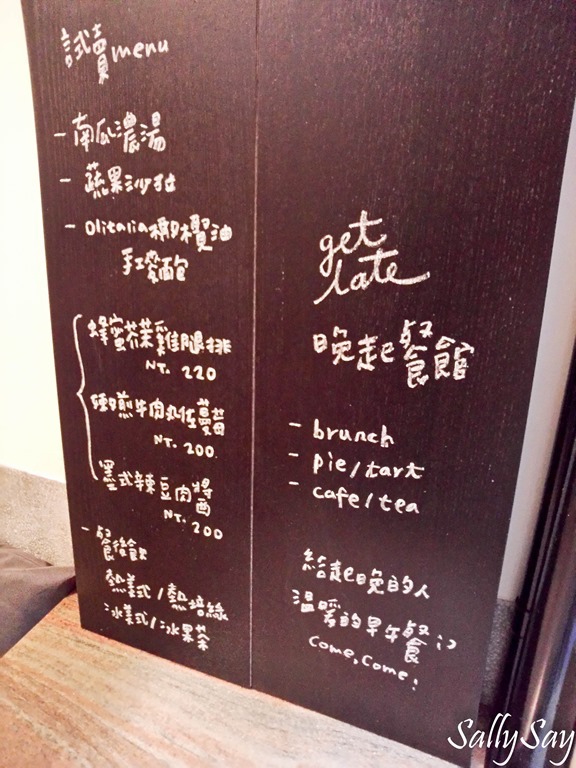 試賣menu
- 南瓜濃湯
- 蔬果沙拉
- Olitalia橄欖油
手工麵包
蜂蜜芥茉雞腿排
NT. 220
煎牛肉丸佐蘑菇
NT. 200
墨式辣豆肉醬
NT. 200
- 餐後飲
熱美式/熱培絲
冰美式/冰果茶
get
late
晚起餐館
- brunch
- pie/tart
- cafe/tea
給起晚的人
溫暖的早午餐
come, come!
SallySay